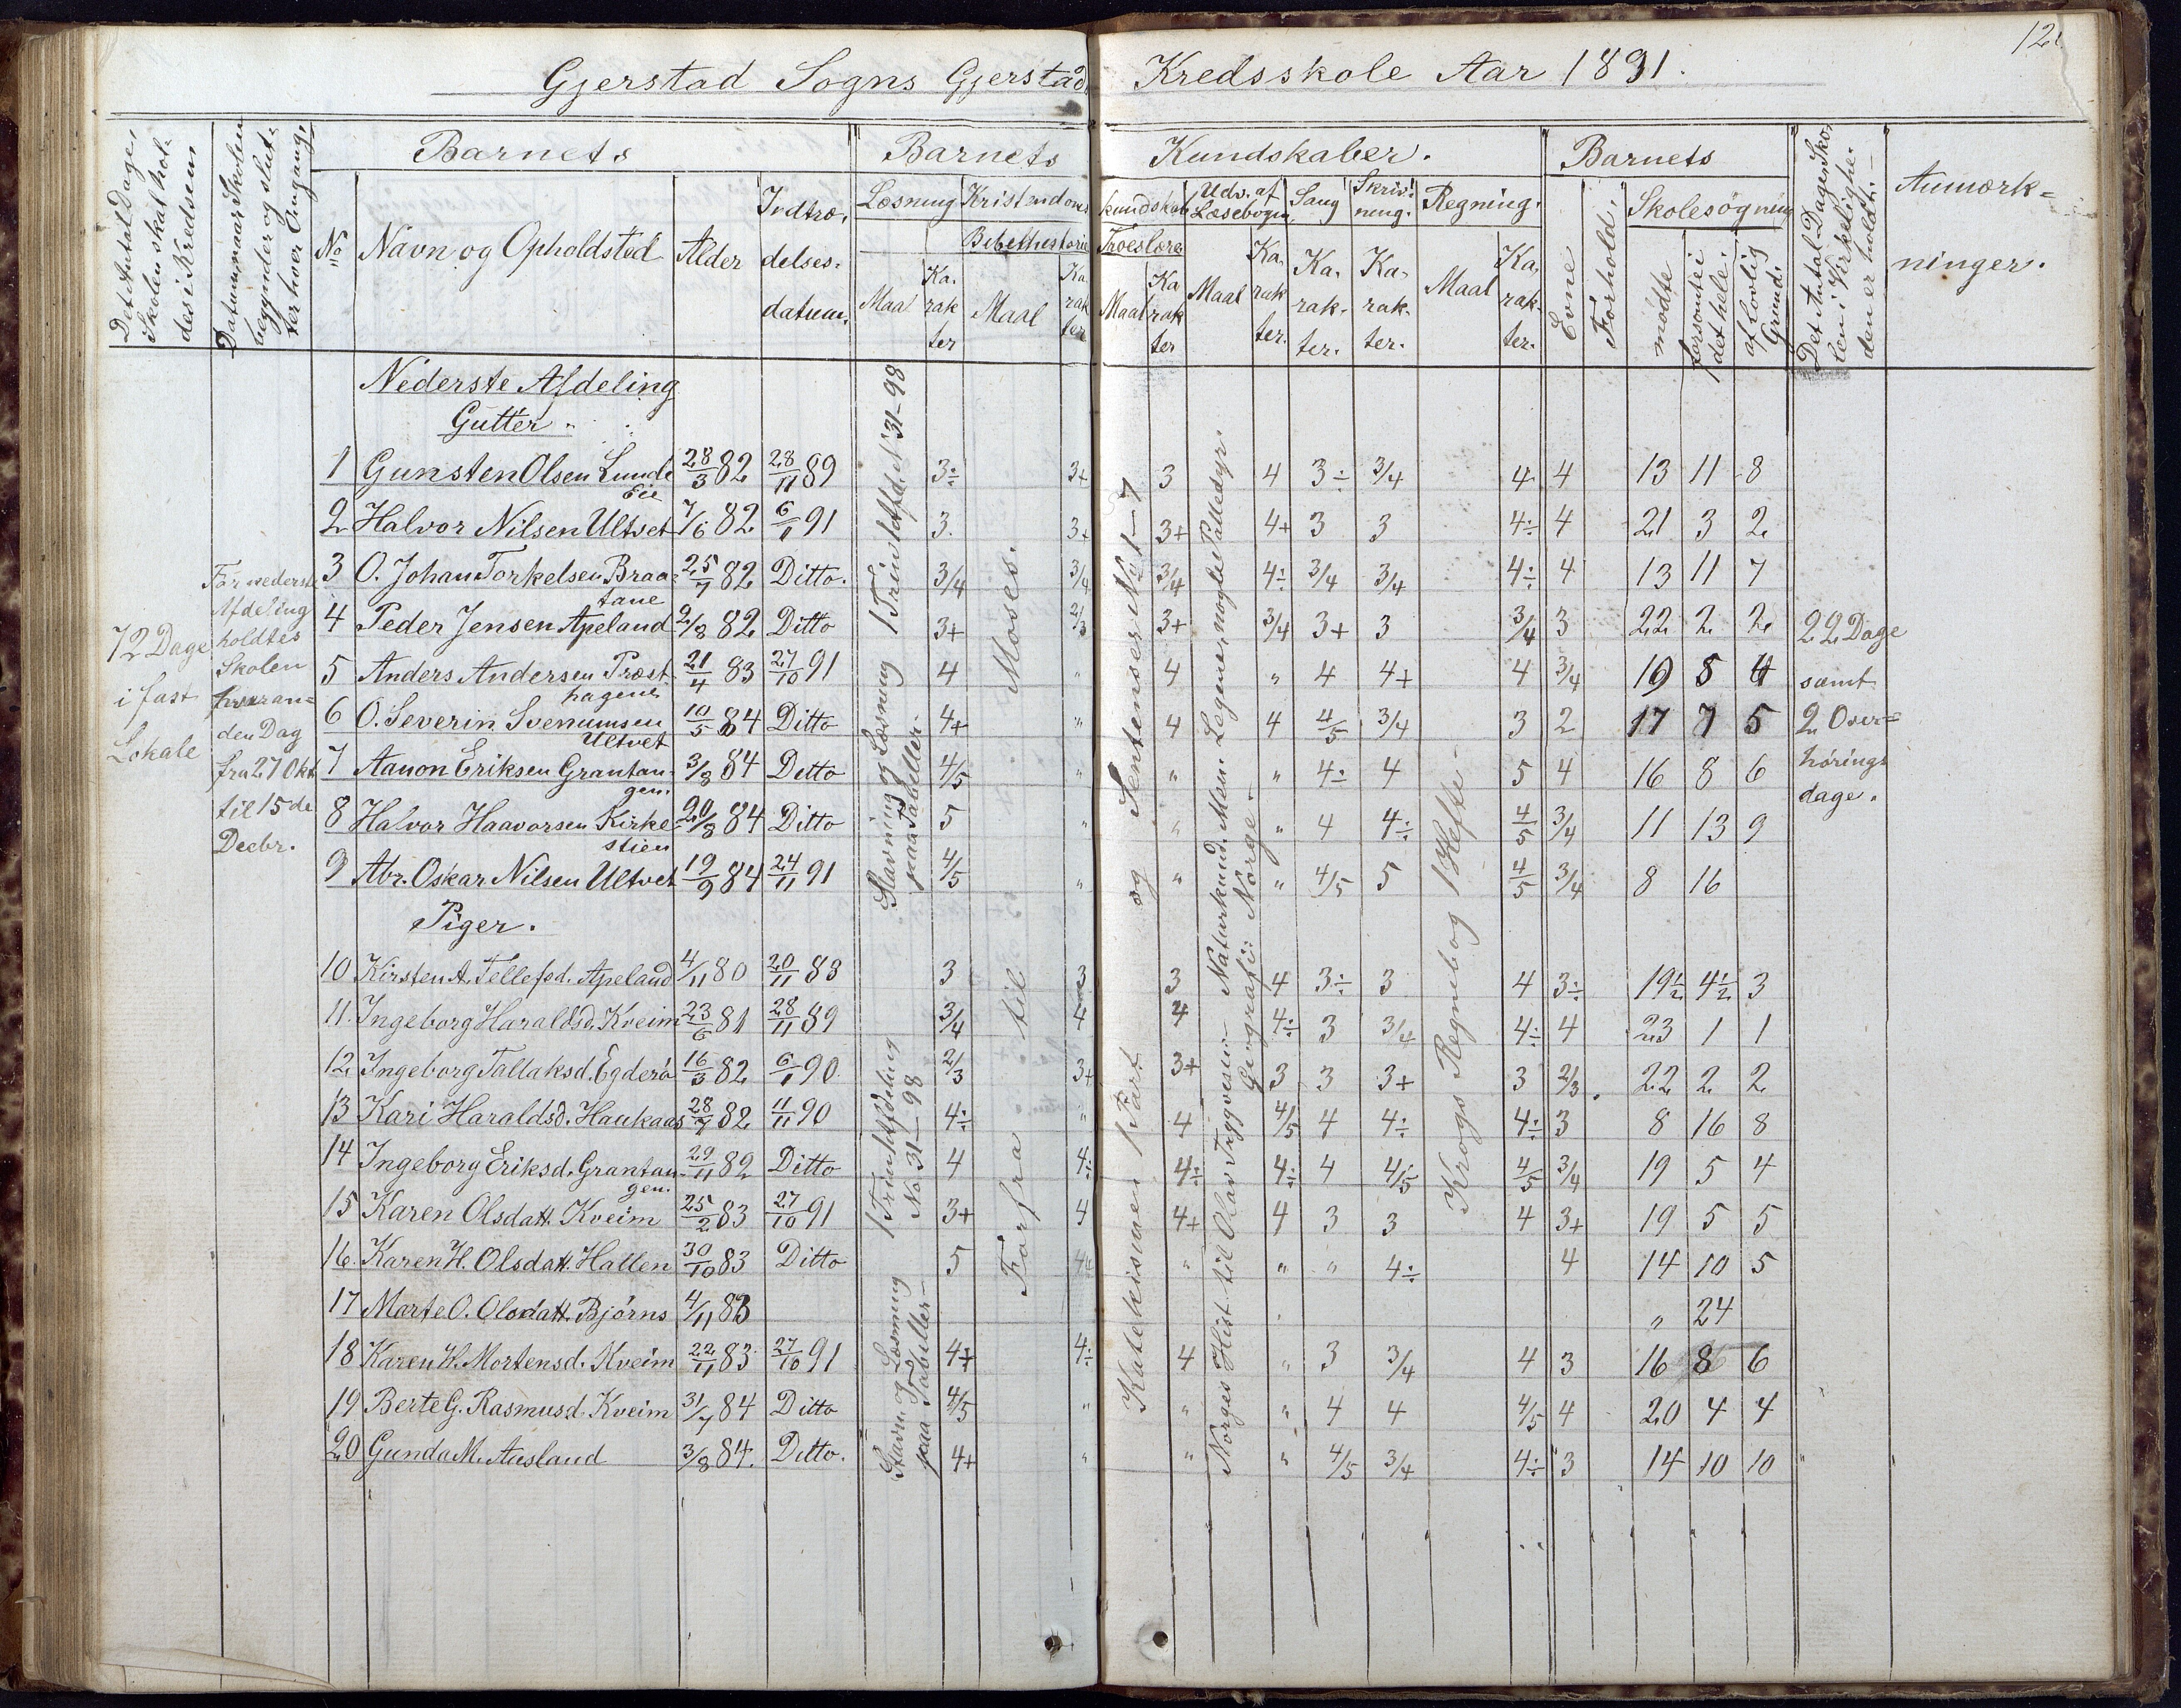 12
Gjerstad Sogns Gjerstad Kredsskole Aar 1891.
Det Antal Dage, Skolen skal holdes i Kredsen
Datum, naar Skolen begynder og slutter hver Omgang.
Barnets
Barnets
Kundskaber.
Barnets
Det Antal Dage Skolen i Virkeligheden er holdt.
Anmærkninger.
No
Navn og Opholdsted
Alder
Indtrædelsesdatum.
Læsning
Maal
Karakter
Kristendomskundskab
Bibelhistorie
Maal
Karakter
Troeslære
Maal
Karakter
Udv. af Læsebogen
Maal
Karakter.
Sang
Karakter.
Skrivning.
Karakter.
Regning.
Maal
Karakter.
Evne
Forhold.
Skolesøgning
mødte
forsømt i det hele.
af lovlig Grund.
72 Dage
i fast
Lokale
For nederste
Afdeling
holdtes
Skolen
hveranden Dag
fra 27 Okt
til 15de
Decbr.
Nederste Afdeling
Gutter.
1 Gunsten Olsen Lunde Eie 28/3 82 28/11 89 3÷ 3+ 3 4 3÷ 3/4 4 4 13 11 8
2 Halvor Nilsen Ultvet 7/6 82 6/1 91 3 3+ 3+ 4+ 3 3 4÷ 4 21 3 2
3 O. Johan Torkelsen Braatane 25/7 82 Ditto. 3/4 3/4 3/4 4÷ 3/4 3/4 4÷ 4 13 11 7
4 Peder Jensen Apeland 2/8 82 Ditto 3+ 2/3 3+ 3/4 3+ 3 3/4 3 22 2 2
5 Anders Andersen Præsthagene 21/4 83 27/10 91 4 " 4 " 4 4+ 4 3/4 19 5 4
6 O. Severin Svenumsen Ultvet 10/5 84 Ditto 4+ " 4 4 4/5 3/4 3 2 17 7 5
7 Aanon Eriksen Grantangen. 3/8 84 Ditto 4/5 " " " 4÷ 4 5 4 16 8 6
8 Halvor Haavorsen Kirkestien 20/8 84 Ditto 5 " " " 4 4÷ 4/5 3/4 11 13 9
9 Abr. Oskar Nilsen Ultvet 19/9 84 24/11 91 4/5 " " " 4/5 5 4/5 3/4 8 16
Piger.
10 Kirsten A. Tellefsd. Apeland 4/11 80 20/11 88 3 3 3 4 3÷ 3 4 3÷ 19½ 4½ 3
11. Ingeborg Haraldsd. Kveim 23/6 81 28/11 89 3/4 4 4 4÷ 3 3/4 4÷ 4 23 1 1
12 Ingeborg Tallaksd. Egderø 16/3 82 6/1 90 2/3 3+ 3+ 3 3 3+ 3 2/3 22 2 2
13 Kari Haraldsd. Haukaas 28/7 82 11/11 90 4÷ " 4 4/5 4 4÷ 4÷ 3 8 16 8
14 Ingeborg Eriksd. Grantangen. 29/11 82 Ditto 4 4÷ 4÷ 4÷ 4 4/5 4/5 3/4 19 5 4
15 Karen Olsdatt. Kveim 25/2 83 27/10 91 3+ 4 4+ 4 3 3 4 3+ 19 5 5
16. Karen H. Olsdatt. Hallen 30/10 83 Ditto 5 " " " 4÷ 4 14 10 5
17 Marte O. Olsdatt. Bjørns 4/11 83 " 24
18 Karen K. Mortensd. Kveim 22/11 83 27/10 91 4+ 4÷ 4 " 3 3/4 4 3 16 8 6
19 Berte G. Rasmusd. Kveim 31/7 84 Ditto 4/5 " " " 4 4 4/5 4 20 4 4
20 Gunda M. Aasland 3/8 84. Ditto. 4+ " " " 4/5 3/4 4÷ 3 14 10 10
Stavning og Læsning 1 Trin 1 Afd. No 31-98
paa Tabeller.
Stavn. og Læsning 1 Trin 1 Afdeling
paa Tabeller- No 31-98
Forfra til Moses.
Katekismen 1 Part og Sentenser No 1-7
Norges Hist. til Olav Trygvesen- Naturkund. Men. Legeme, nogle Pattedyr.
Geografi: Norge-
Krogs Regnebog 1 Hefte-
22 Dage
samt
2 Overhøringsdage.